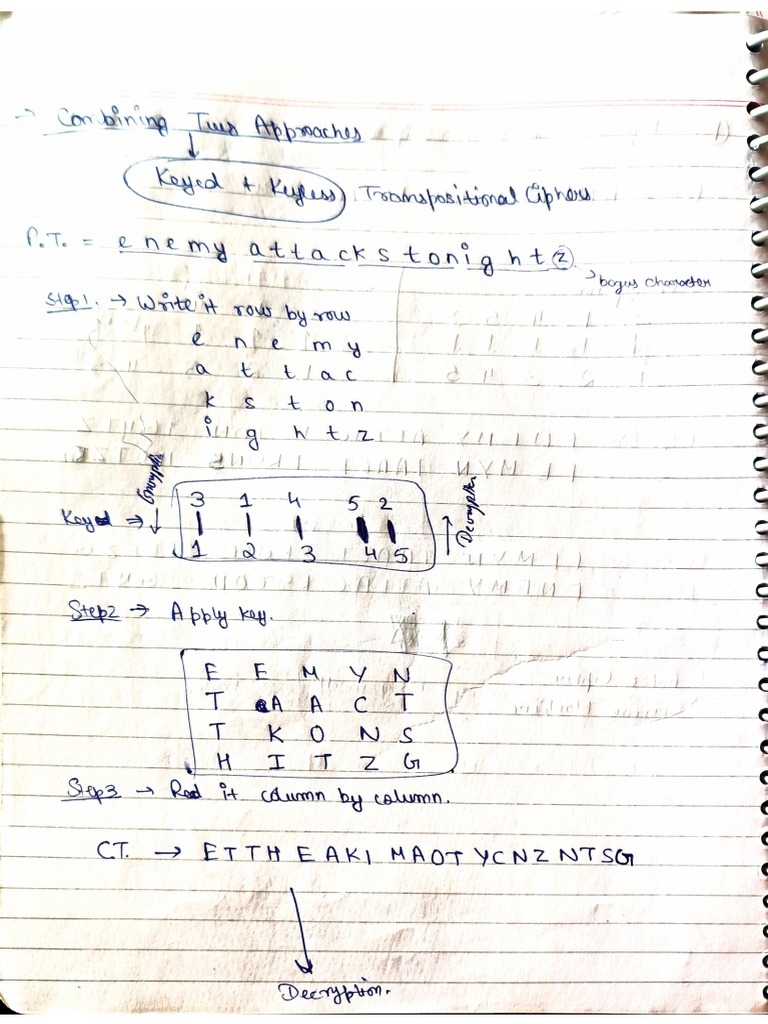 → Combining Two Approaches
Keyed + Keyless Transpositional Ciphers
P.T. = enemy attackstonight z
bogus character
Step1. → Write it row by row
e n e m y
a t t a c
k s t o n
i g h t z
Encryption
3 1 4 5 2
Keyed ⇒
1 2 3 4 5
Decryption
Step2 → Apply key.
E E M Y N
T A A C T
T K O N S
H I T Z G
Step3 → Read it column by column.
C.T. → ETTH EAKI MAOT YCNZ NTSG
Decryption.